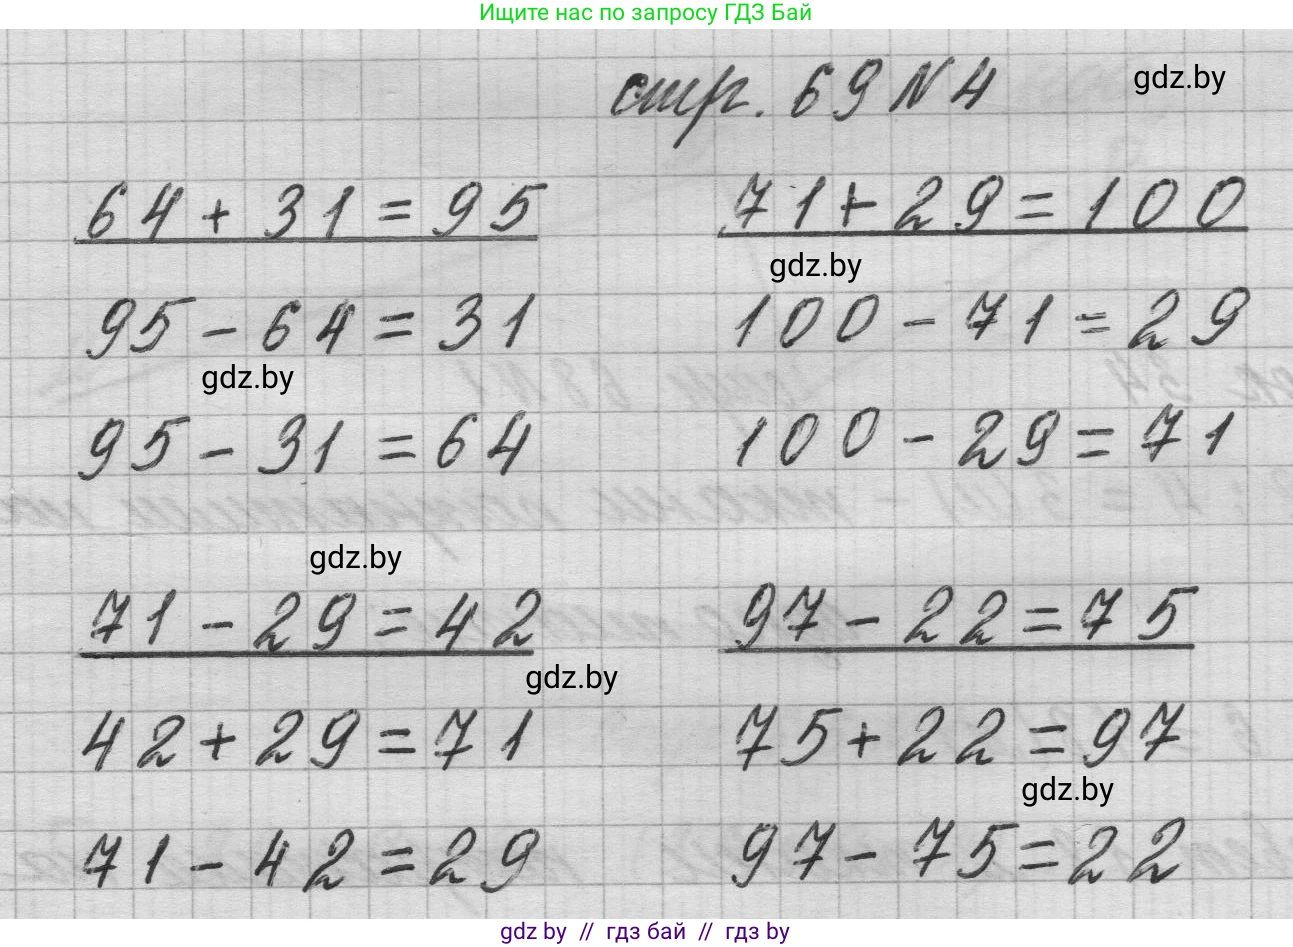 Ищите нас по запросу ГДЗ Бай
стр. 69 N 4
gdz.by
64 + 31 = 95
71 + 29 = 100
gdz.by
95 - 64 = 31
100 - 71 = 29
gdz.by
95 - 31 = 64
100 - 29 = 71
gdz.by
71 - 29 = 42
97 - 22 = 75
gdz.by
42 + 29 = 71
75 + 22 = 97
gdz.by
71 - 42 = 29
97 - 75 = 22
gdz by // гдз бай // гдз by